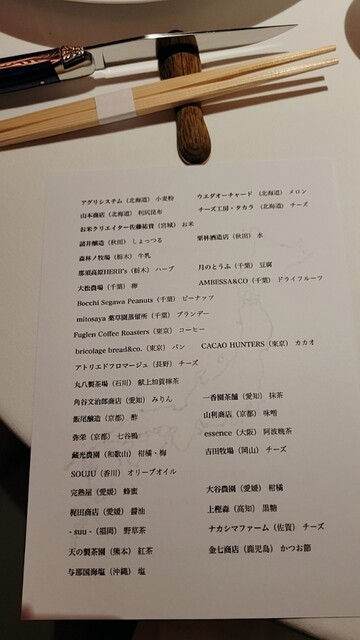 アグリシステム（北海道）小麦粉　ウエダオーチャード（北海道）メロン
山本商店（北海道）利尻昆布　チーズ工房・タカラ（北海道）チーズ
お米クリエイター佐藤裕貴（宮城）お米
諸井醸造（秋田）しょっつる　栗林酒造店（秋田）水
森林ノ牧場（栃木）牛乳
那須高原HERB's（栃木）ハーブ　月のとうふ（千葉）豆腐
大松農場（千葉）卵　AMBESSA&CO（千葉）ドライフルーツ
Bocchi Segawa Peanuts（千葉）ピーナッツ
mitosaya 薬草園蒸留所（千葉）ブランデー
Fuglen Coffee Roasters（東京）コーヒー
bricolage bread&co.（東京）パン　CACAO HUNTERS（東京）カカオ
アトリエドフロマージュ（長野）チーズ
丸八製茶場（石川）献上加賀棒茶
角谷文治郎商店（愛知）みりん　一香園茶舗（愛知）抹茶
飯尾醸造（京都）酢　山利商店（京都）味噌
弥栄（京都）七谷鴨　essence（大阪）阿波晩茶
蔵光農園（和歌山）柑橘・梅　吉田牧場（岡山）チーズ
SOUJU（香川）オリーブオイル
完熟屋（愛媛）蜂蜜　大谷農園（愛媛）柑橘
梶田商店（愛媛）醤油　上樫森（高知）黒糖
- suu -（福岡）野草茶　ナカシマファーム（佐賀）チーズ
天の製茶園（熊本）紅茶　金七商店（鹿児島）かつお節
与那国海塩（沖縄）塩